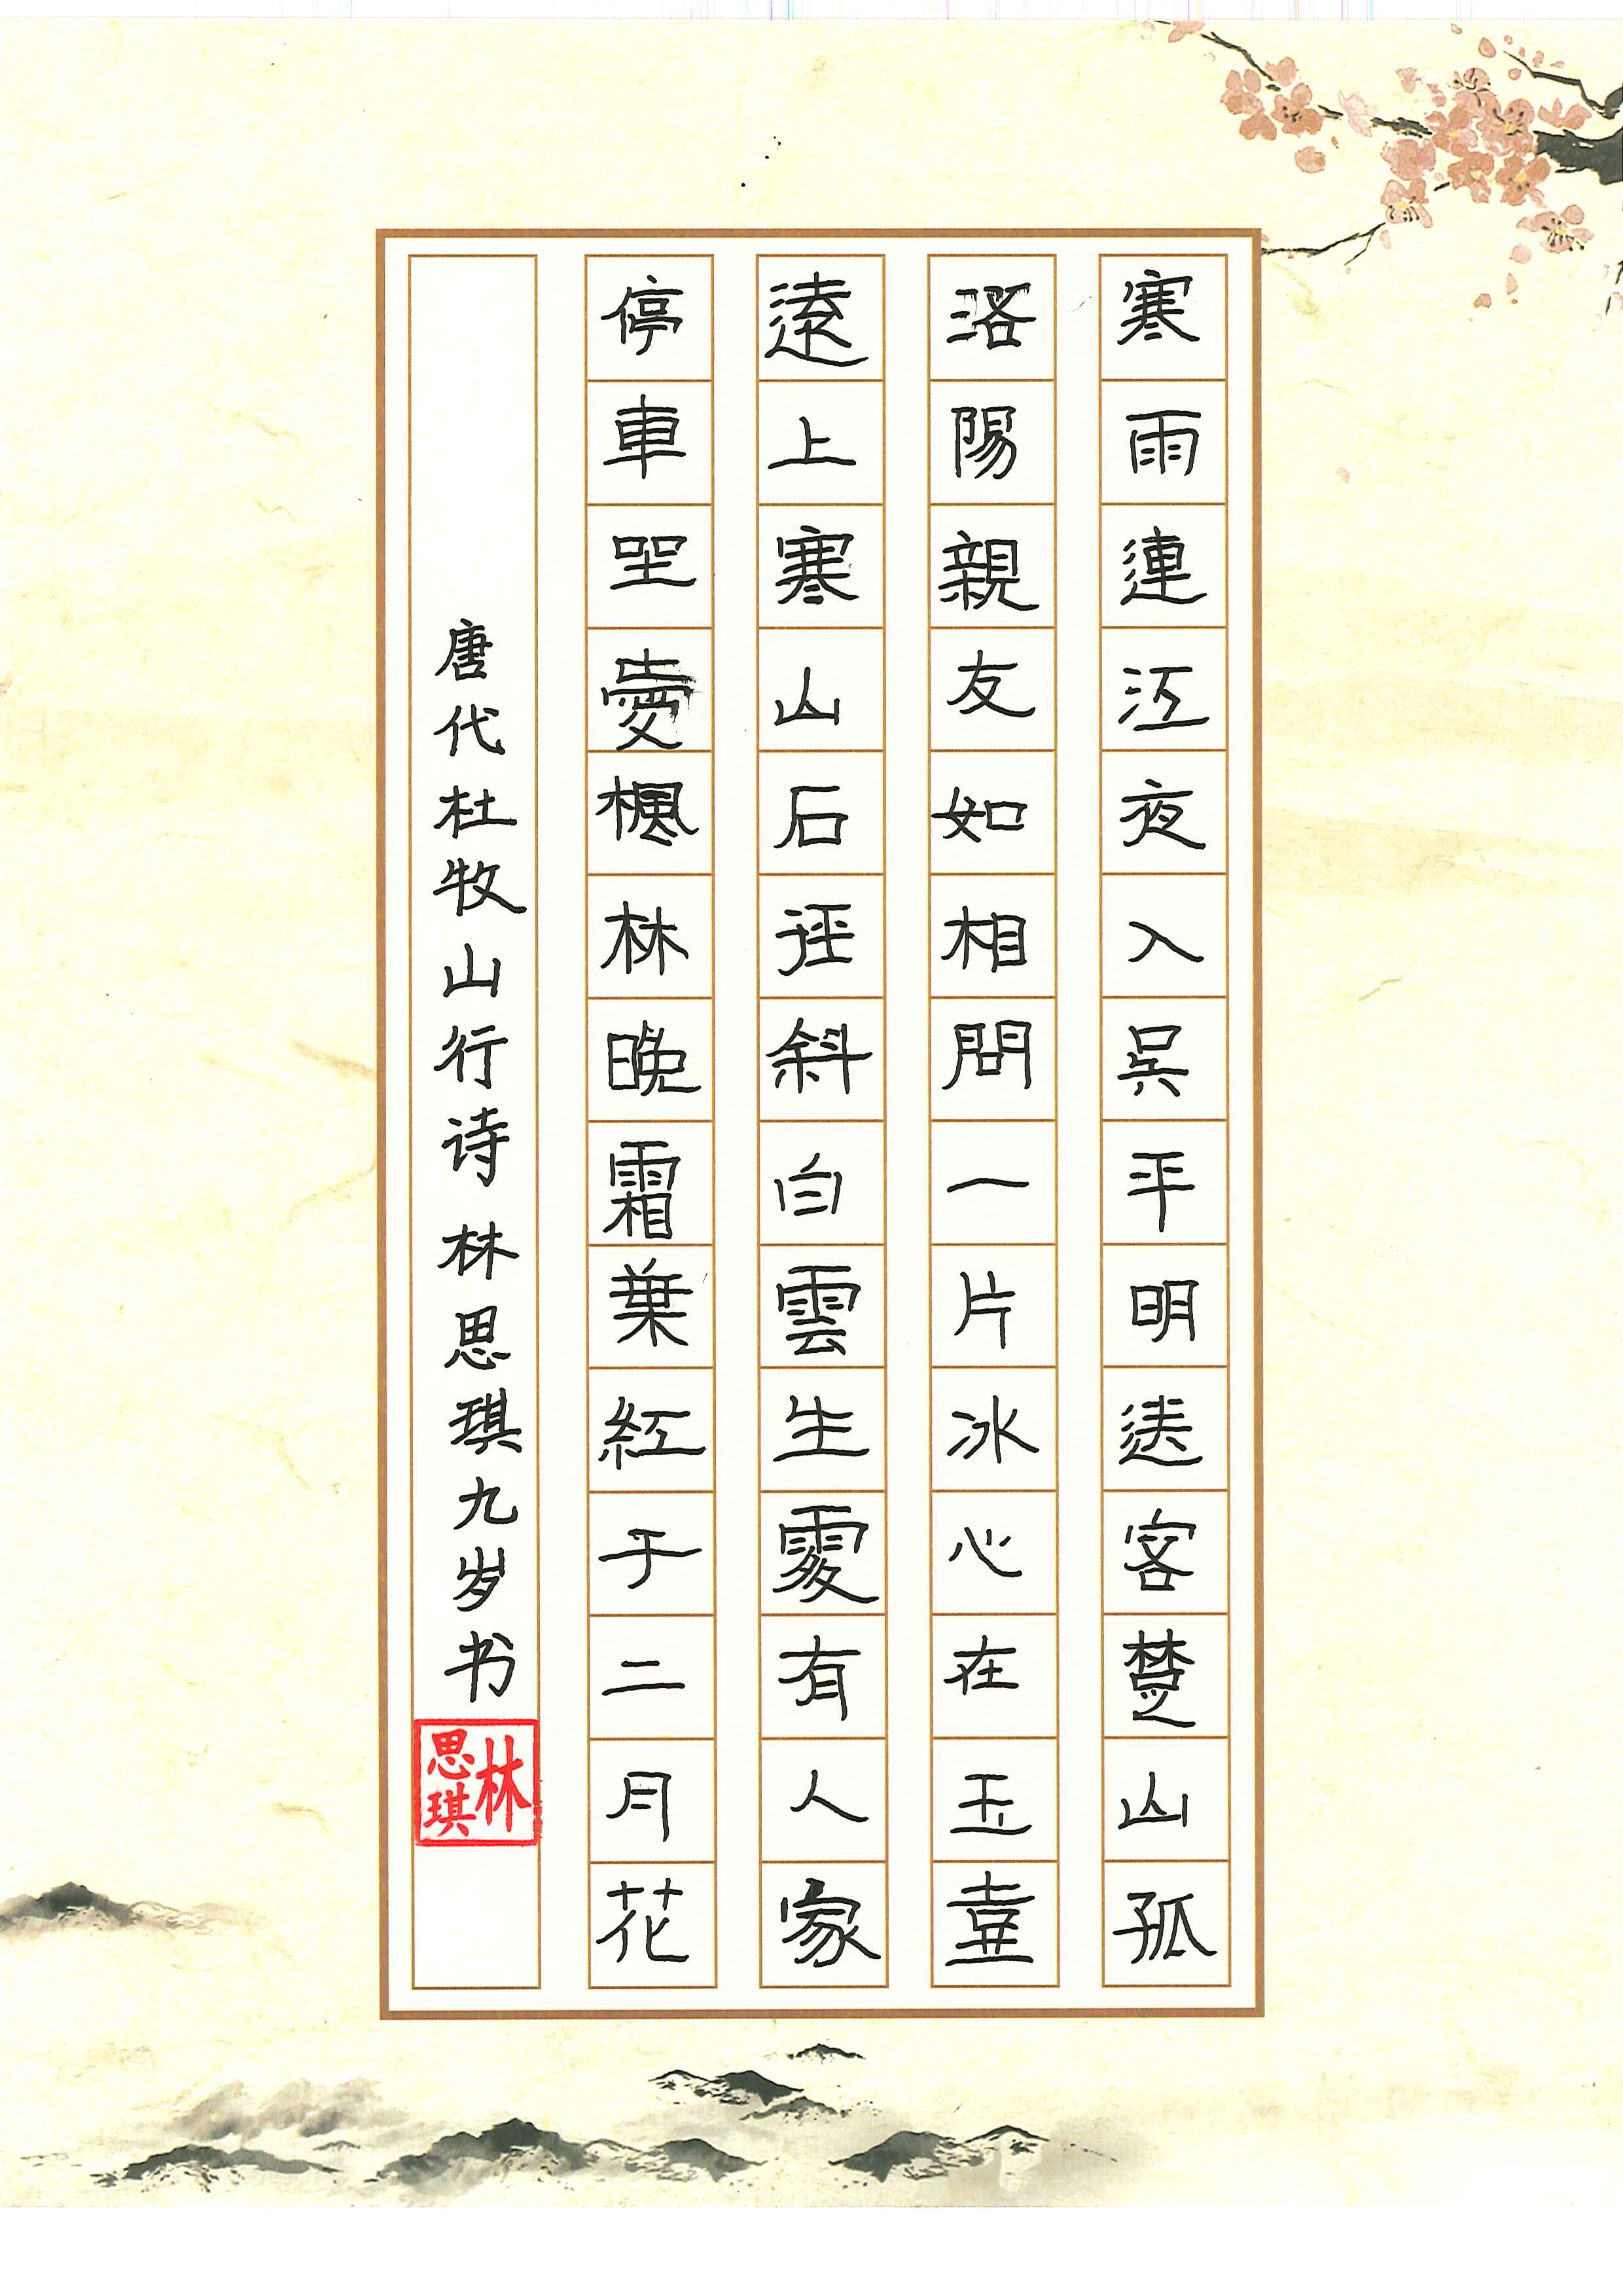 寒雨連江夜入吳平明送客楚山孤
洛陽親友如相問一片冰心在玉壺
遠上寒山石徑斜白雲生處有人家
停車坐愛楓林晚霜葉紅于二月花
唐代杜牧山行诗 林思琪九岁书
林思琪